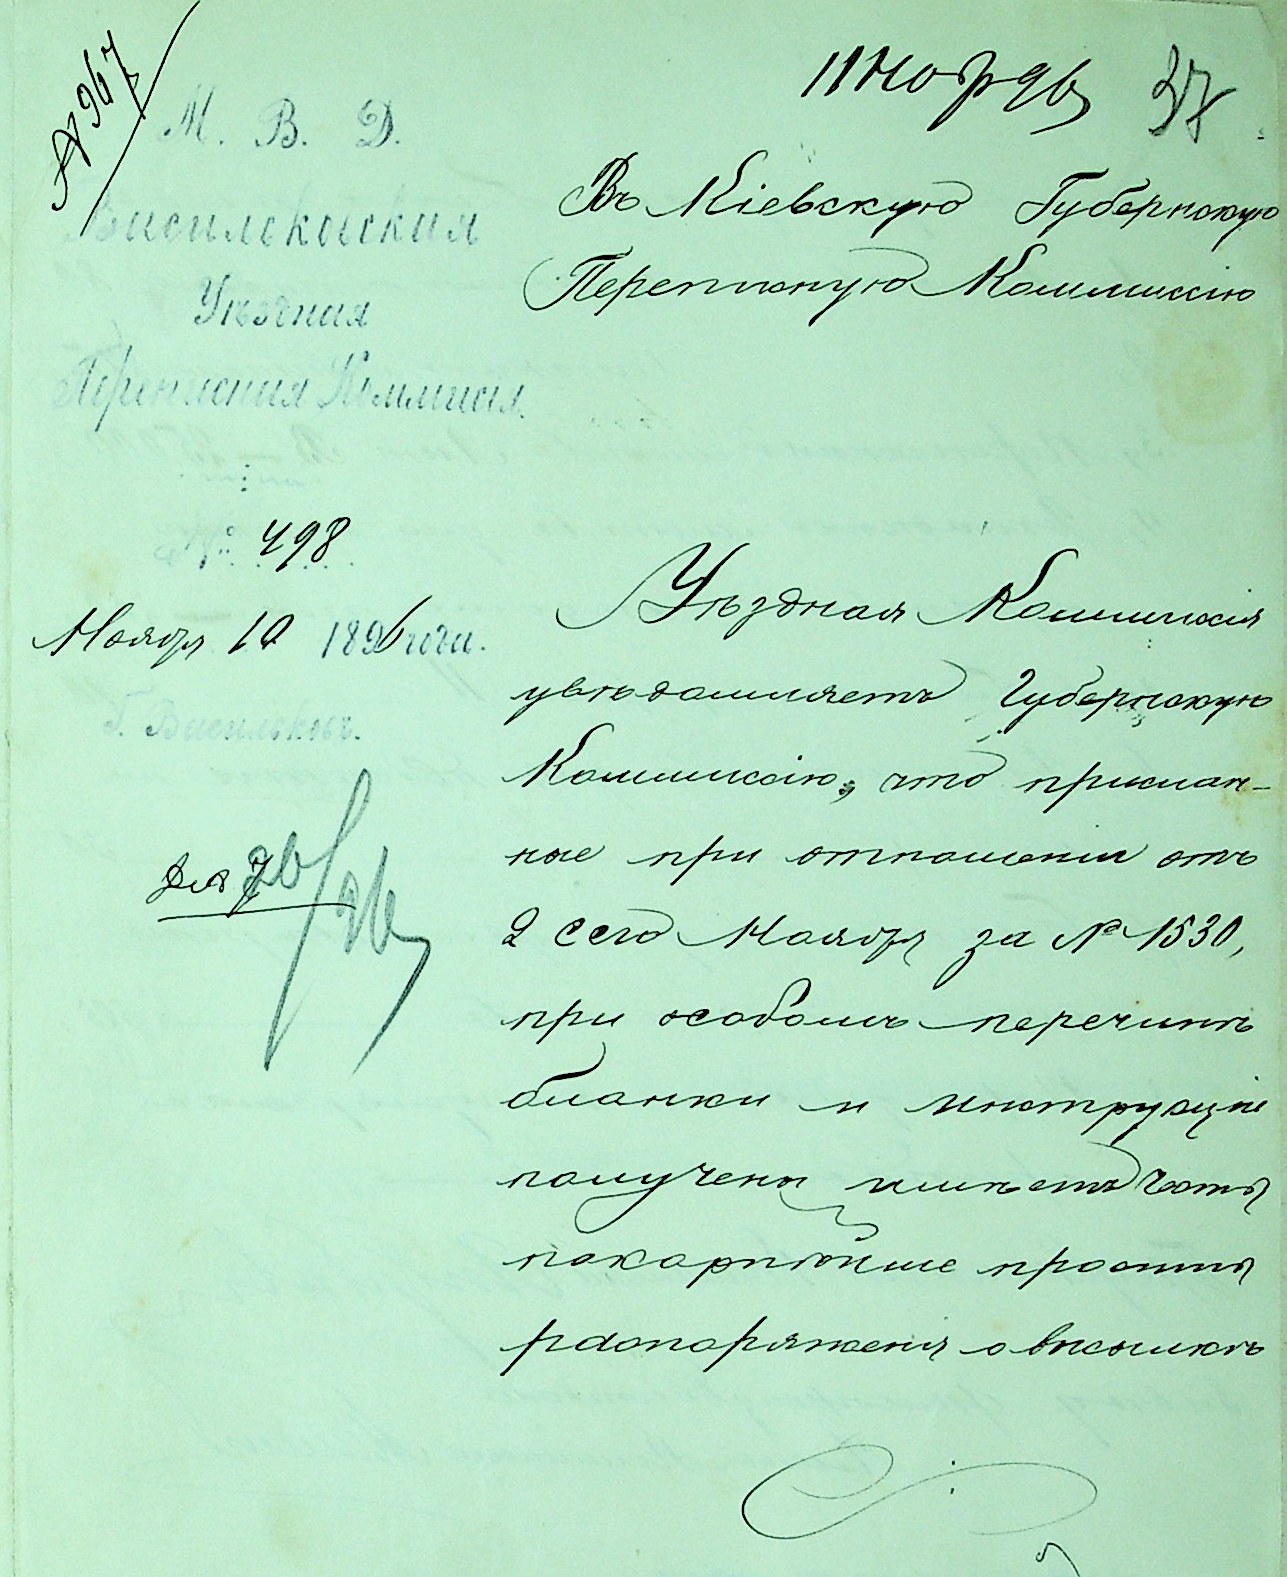 № 967
11 Нояр 96
37
М. В. Д.
Васильковская
Уѣздная
Переписная Коммисія
№ 498
Ноября 10 1896 года.
Г. Васильковъ.
Въ Кіевскую Губернскую
Переписную Коммиссію
Уѣздная Коммиссія
увѣдомляетъ Губернскую
Коммиссію, что прислан-
ные при отношеніи отъ
2 сего Ноября за № 1530,
при особомъ перечнѣ
бланки и инструкціи
получены имѣетъ честь
покорнѣйше просить
распоряженія о высылкѣ